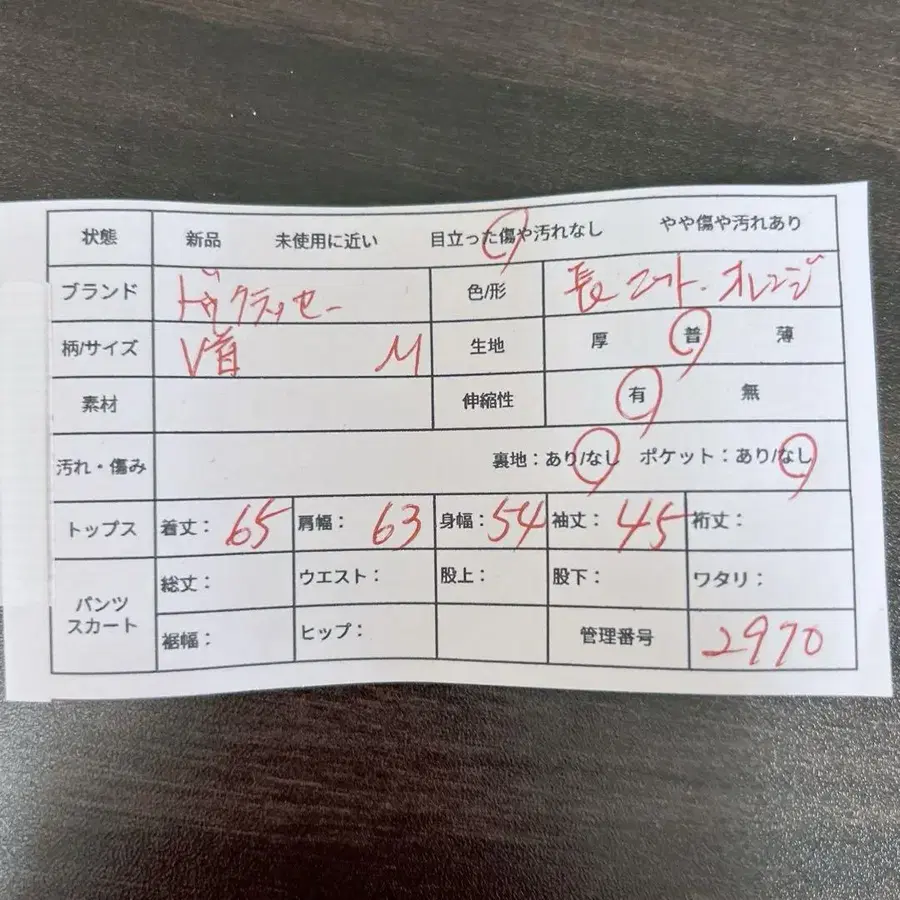 状態 新品 未使用に近い 目立った傷や汚れなし やや傷や汚れあり
ブランド ドゥクラッセー 色/形 長ニット・オレンジ
柄/サイズ V首 M 生地 厚 普 薄
素材 伸縮性 有 無
汚れ・傷み 裏地：あり/なし ポケット：あり/なし
トップス 着丈： 65 肩幅： 63 身幅： 54 袖丈： 45 裄丈：
パンツ スカート
総丈： ウエスト： 股上： 股下： ワタリ：
裾幅： ヒップ： 管理番号 2970